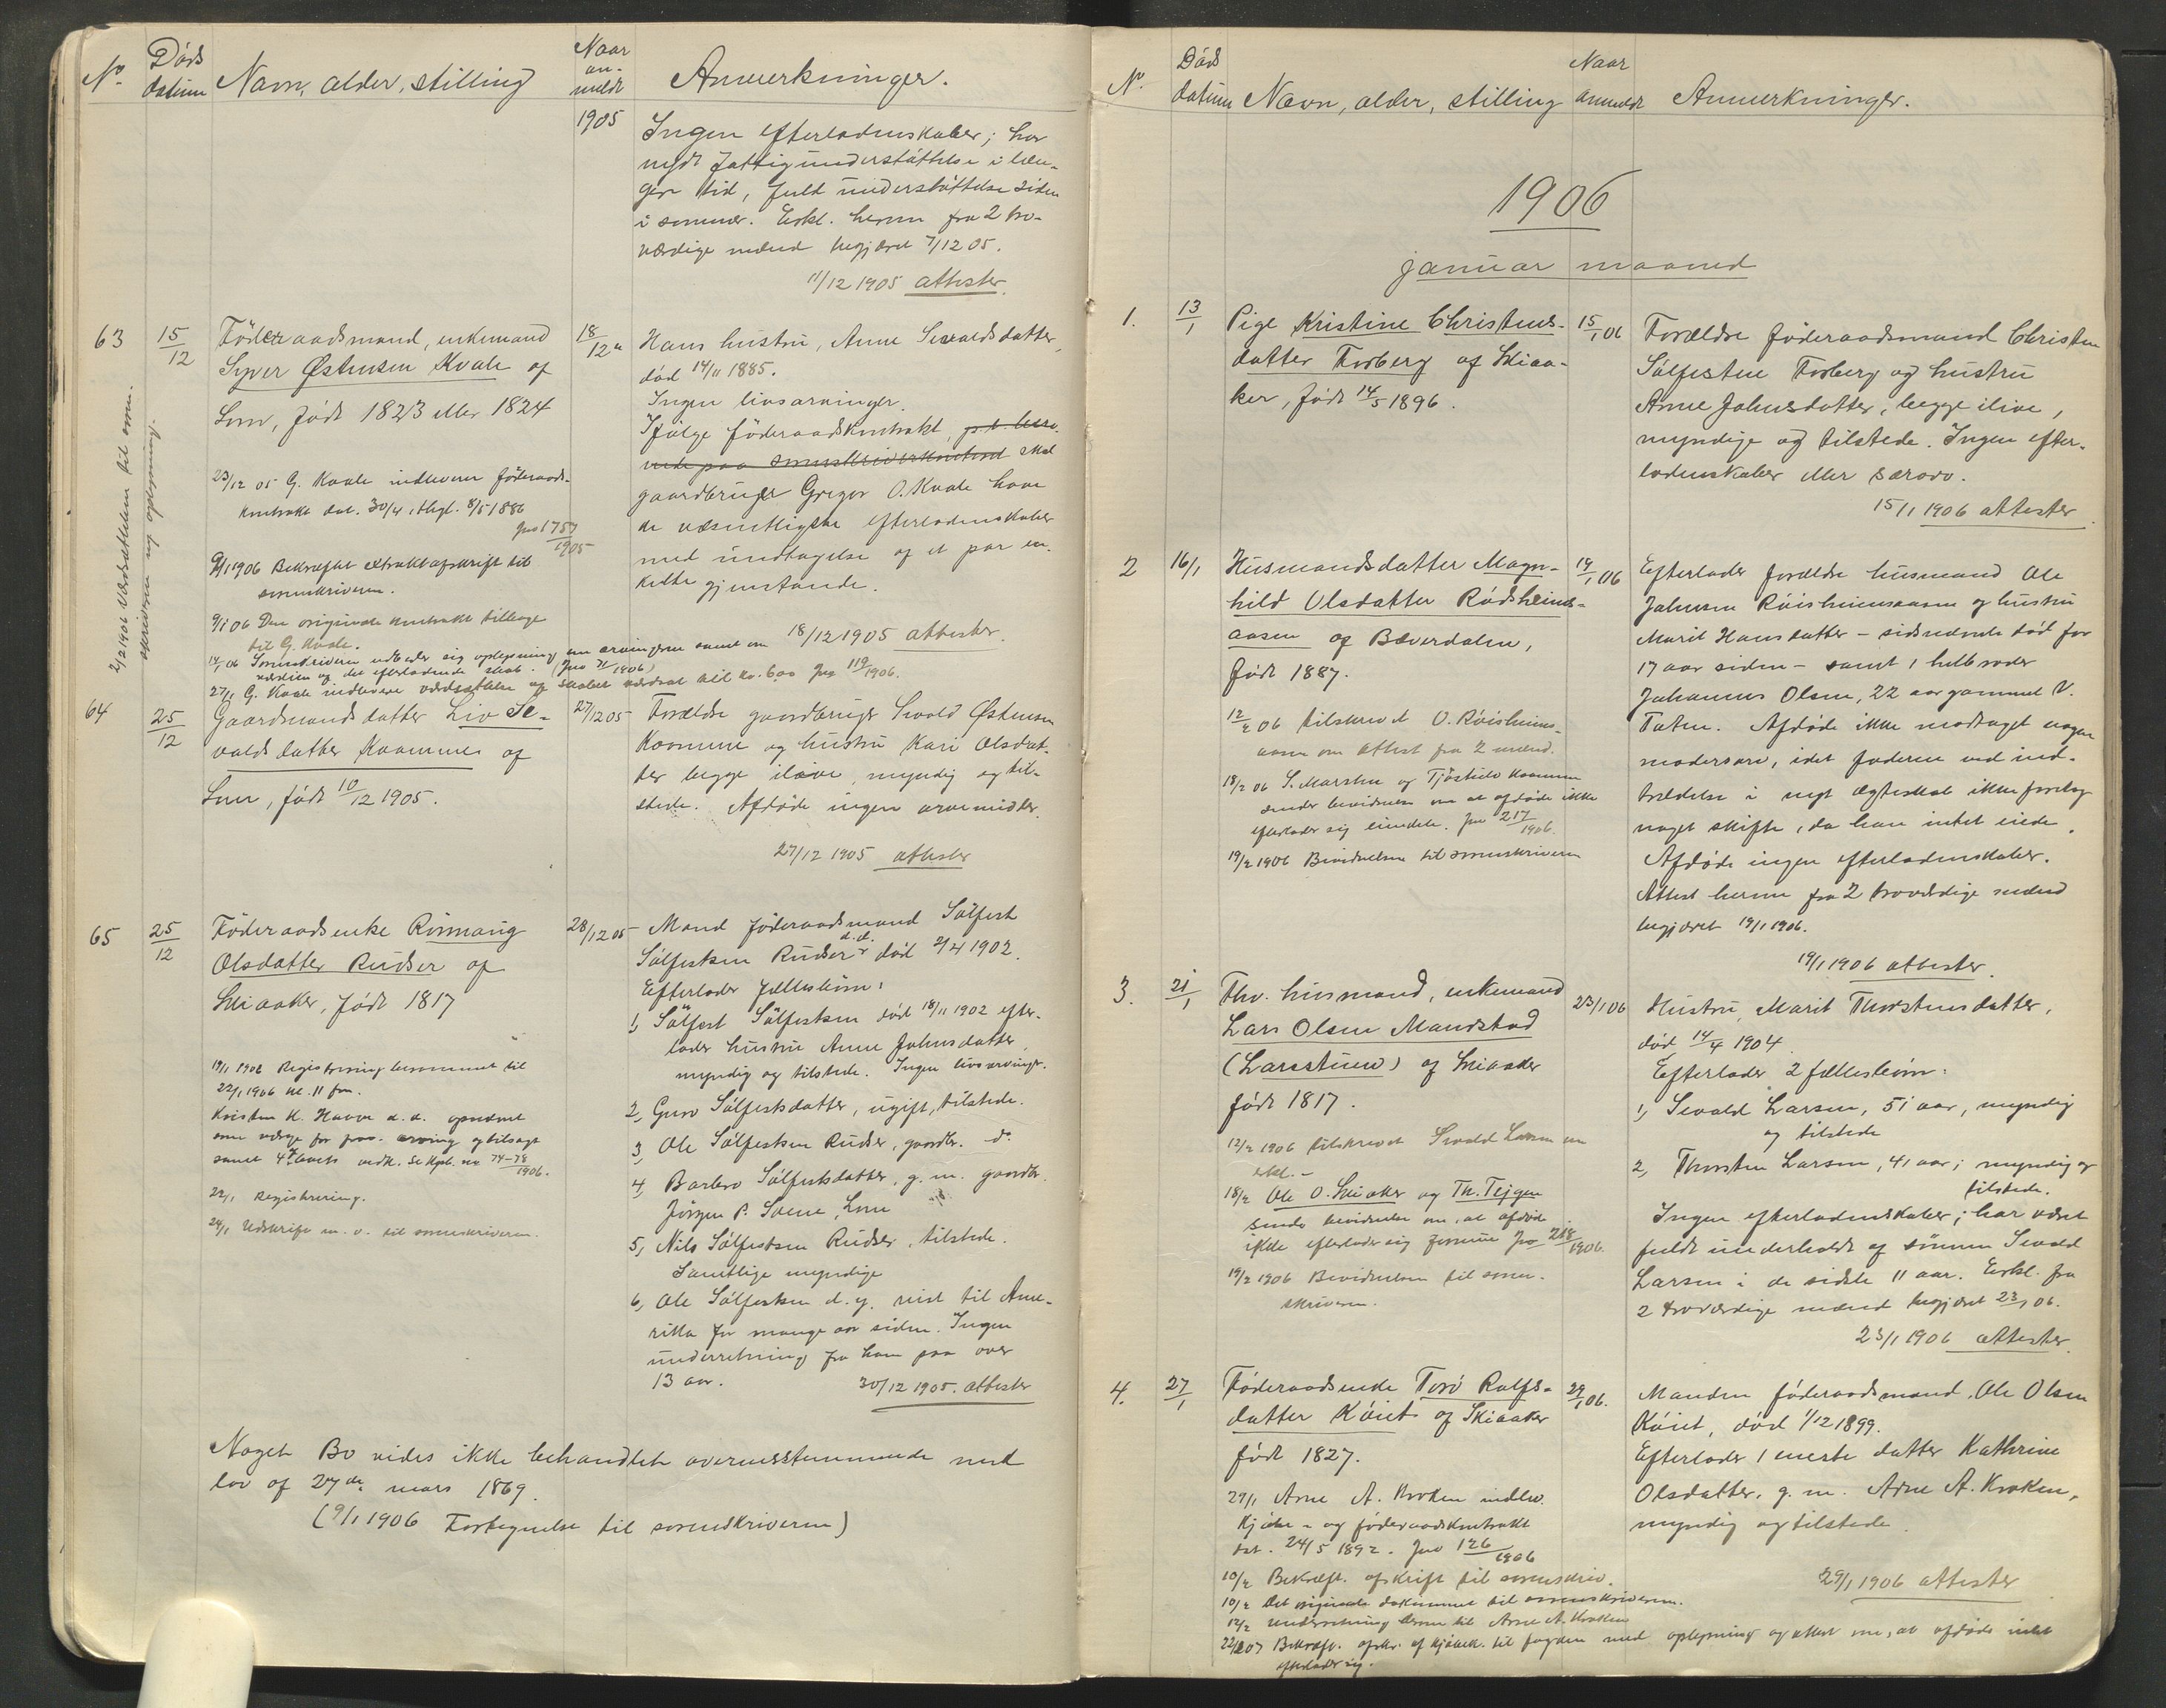 No
Döds
datum
Navn, alder, stilling
Naar
an-
meldt
Anmerkninger.
1905
Ingen efterladenskaber; har
nydt fattigunderstöttelse i læn-
gere tid, fuld understöttelse siden
i sommer. Erkl. herom fra 2 tro-
værdige mænd begjæret 7/12 05.
11/12 1905 attester
63
15/12
Föderaadsmand, enkemand
Syver Østensen Kvale af
Lom, födt 1823 eller 1824
23/12 05 G. Kvale indleverer föderaads-
kontrakt dat. 30/4, thgl. 8/5 1886
Jno 1757/1905
9/1 1906 Bekræftet extraktafskrift til
sorenskriveren.
9/1 06 Den originale kontrakt tilbage
til G. Kvale.
14/1 06 Sorenskriveren udbeder sig oplysning om arvingerne samt om
værdien af det efterladende skab. (Jno 71/1906)
27/1 G. Kvale indleverer værdsættelse af skabet værdsat til kr. 6,00 Jno 119/1906.
2/2 1906 Værdsættelsen til soren-
skriveren med oplysning.
18/12
Hans hustru, Anne Sevaldsdatter,
död 14/11 1885.
Ingen livsarvinger.
Ifölge föderaadskontrakt, skal
gaardbruger Gregor O. Kvale have
de væsentligste efterladenskaber
med undtagelse af et par en-
kelte gjenstande.
18/12 1905 attester
64
25/12
Gaardmandsdatter Liv Se-
valdsdatter Kvamme af
Lom, födt 10/12 1905.
27/12 05
Forældre gaardbruger Sevald Østensen
Kvamme og hustru Kari Olsdat-
ter begge ilive, myndig og til-
stede. Afdöde ingen arvemidler.
27/12 1905 attester
65
25/12
Föderaadsenke Rönnaug
Olsdatter Rudser af
Skiaaker, födt 1817
19/1 1906 Registrering berammet til
22/1 1906 kl. 11 fm.
Kristen K. Haave d. æ. opnævnt
som værge for frav. arving og tilsagt
samt
22/1 Registrering.
24/1 Udskrift m. v. til sorenskriveren.
28/12 05
Mand föderaadsmand Sölfest
Sölfestsen Rudser d.æ. död 2/4 1902.
Efterlader fællesbörn:
1, Sölfest Sölfestsen död 18/11 1902 efter-
lader hustru Anne Johnsdatter
myndig og tilstede. Ingen livsarvinger.
2, Guro Sölfestsdatter, ugift, tilstede.
3, Ole Sölfestsen Rudser, gaardbr. do
4, Barbro Sölfestsdatter, g. m. gaardbr.
Jörgen P. Sæue, Lom
5, Nils Sölfestsen Rudser, tilstede.
Samtlige myndige
6, Ole Sölfestsen d.y. reist til Ame-
rika for mange aar siden. Ingen
underretning fra ham paa over
13 aar.
30/12 1905. attester
Noget Bo vides ikke behandlet overensstemmende med
lov af 27de mars 1869.
(9/1 1906 Fortegnelse til sorenskriveren)
No
Döds
datum
Navn, alder, stilling
Naar
anmeldt
Anmerkninger.
1906
januar maaned
1.
13/1
Pige Kristine Christens-
datter Forberg af Skiaa-
ker, födt 14/5 1896.
15/1 06
Forældre föderaadsmand Christen
Sölfestsen Forberg og hustru
Anne Johnsdatter, begge ilive,
myndige og tilstede. Ingen efter-
ladenskaber eller særarv.
15/1 1906 attester
2
16/1
Husmandsdatter Magn-
hild Olsdatter Rödsheims-
aasen af Bæverdalen,
födt 1887.
12/2 06 tilskrevet O. Röisheims-
aasen om attest fra 2 mænd.
18/2 06 S. Marstein og Tjöstolv Kvamme
sender bevidnelse om at afdöde ikke
efterlader sig eiendele. Jno 217/1906.
19/2 1906 Bevidnelsen til sorenskriveren
19/1 06
Efterlader forældre husmand Ole
Johnsen Röisheimsaasen og hustru
Marit Hansdatter – sidstnævnte död for
17 aar siden – samt 1 helbroder
Johannes Olsen, 22 aar gammel V.
Toten. Afdöde ikke modtaget nogen
mödrearv, idet faderen ved ind-
trædelse i nyt ægteskab ikke foretog
noget skifte, da han intet eiede.
Afdöde ingen efterladenskaber.
Attest herom fra 2 troværdige mænd
begjæret 19/1 1906.
19/1 1906 attester
3.
21/1
Fhv. husmand, enkemand
Lars Olsen Mandstad
(Larsstuen) af Skiaaker
födt 1817.
12/2 1906 tilskrevet Sevald Larsen om
erkl. –
18/2 Ole O. Skiaker og Th. Teigen
sender bevidnelse om, at afdöde
ikke efterlader sig formue Jno 218/1906.
19/2 1906 Bevidnelsen til soren-
skriveren.
23/1 06
Hustru, Marit Thorstensdatter,
död 14/4 1904
Efterlader 2 fællesbörn:
1, Sevald Larsen, 51 aar, myndig
og tilstede
2, Thorsten Larsen, 41 aar, myndig og
tilstede.
Ingen efterladenskaber; har været
fuldt underholdt af sönnen Sevald
Larsen i de sidste 11 aar. Erkl. fra
2 troværdige mænd begjæret 23/1 06.
23/1 1906 attester
4.
27/1
Föderaadsenke Toro Rolfs-
datter Köiet af Skiaaker
födt 1827.
29/1 Arne A. Kroken indlev.
kjöbe- og föderaadskontrakt
dat. 24/5 1892. Jno 126/1906
10/2 Bekræft. afskrift til sorenskriv.
10/2 Det originale dokument til sorenskriveren.
12/2 underretning herom til Arne A. Kroken
22/2 07 Bekræft. afskr. af kjöbek. til fogden med oplysning og attest om, at afdöde intet
efterlader sig.
29/1 06.
Manden föderaadsmand Ole Olsen
Köiet, död 1/12 1899.
Efterlader 1 eneste datter Kathrine
Olsdatter, g. m. Arne A. Kroken,
myndig og tilstede
29/1 1906 attester